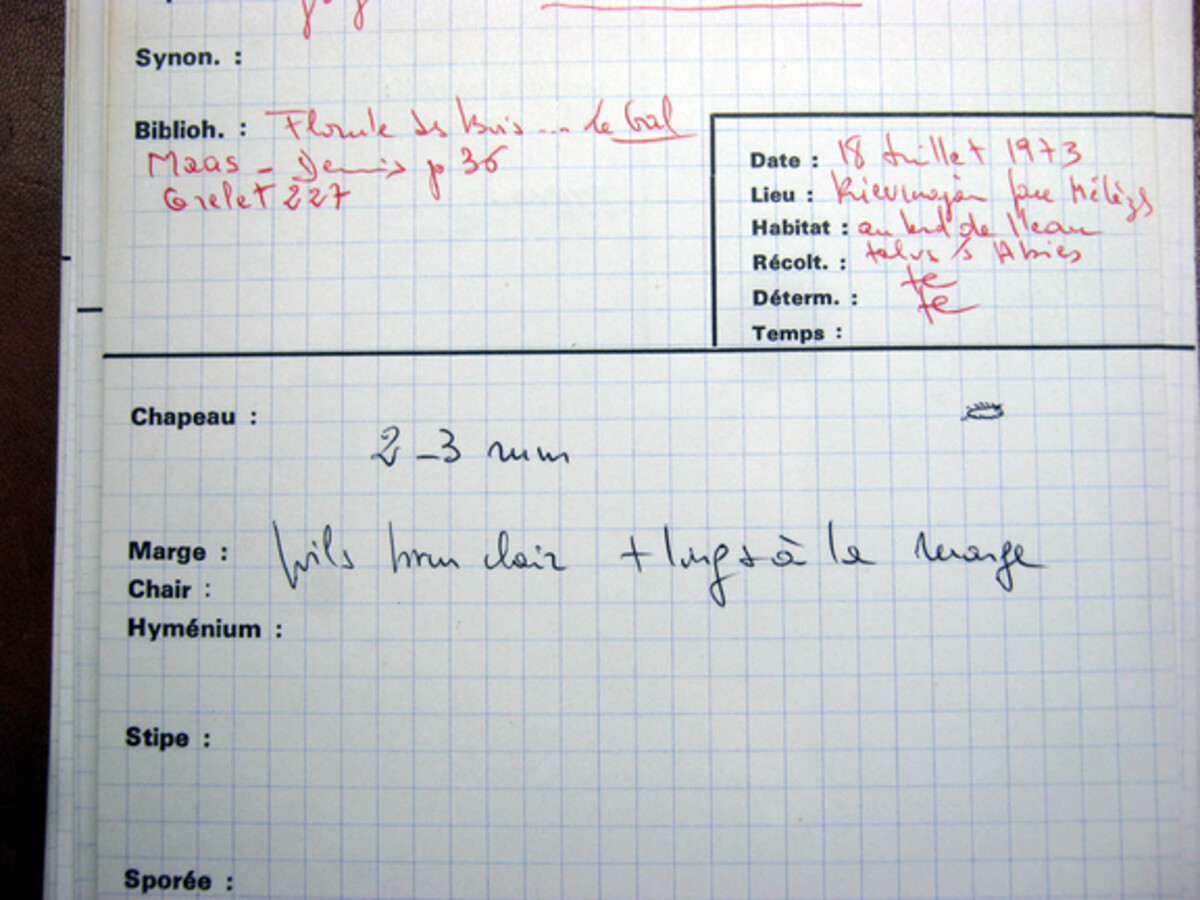 Synon. :
Biblioh. : Florule des Bois ... Le Gal
Maas - Dennis p 36
Grelet 227
Date : 18 Juillet 1973
Lieu : Mélèzes
Habitat : au bord de l'eau
talus s/ Abies
Récolt. :
Déterm. :
Temps :
Chapeau :
2-3 mm
Marge : poils brun clair + longs à la marge
Chair :
Hyménium :
Stipe :
Sporée :